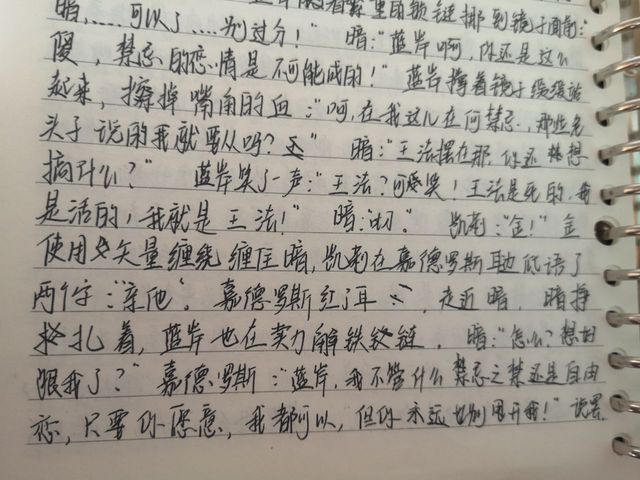 暗……可以了……别过分！" 暗："蓝岸啊，你还是这么
傻，禁忌的恋情是不可能成的！" 蓝岸撑着镜子缓缓站
起来，擦掉嘴角的血："呵，在我这儿在何禁忌，那些老
头子说的我就要从吗？" 暗："王法摆在那，你还想
搞什么？" 蓝岸笑了一声："王法？可笑！王法是死的，我
是活的，我就是王法！" 暗："切。" 凯莉："金！" 金
使用矢量缠绕缠住暗，凯莉在嘉德罗斯耳边低语了
两个字："亲他"。嘉德罗斯红了耳，走近暗，暗挣
扎着，蓝岸也在努力解铁链。暗："怎么？想好
跟我了？" 嘉德罗斯："蓝岸，我不管什么禁忌之禁还是自由
恋，只要你愿意，我都可以，但你永远也别甩开我！" 说罢，